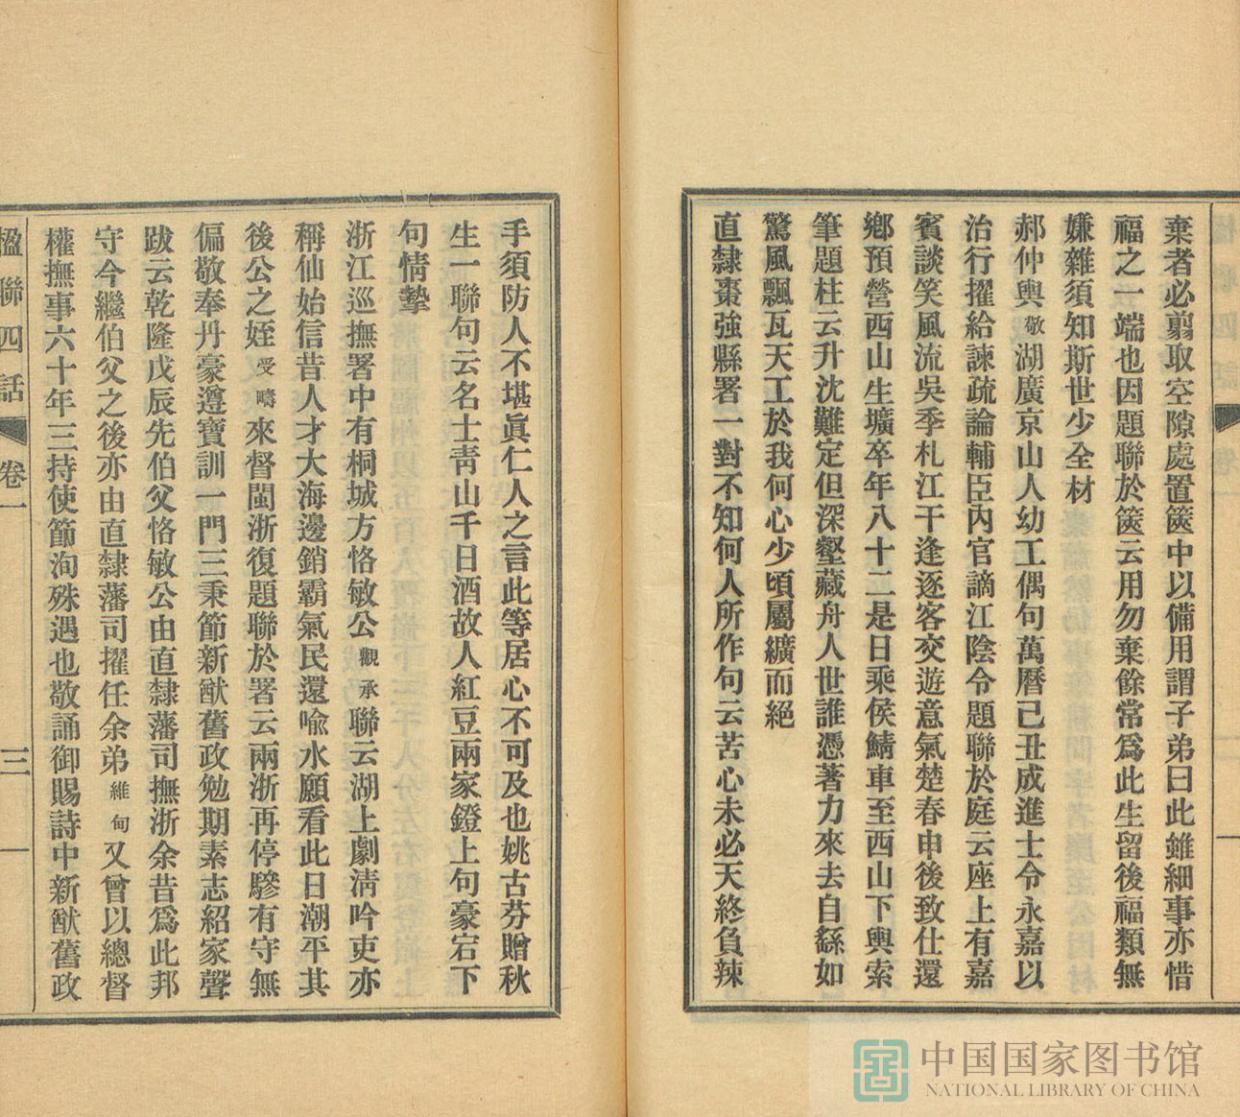 棄者必翦取空隙處置篋中以備用謂子弟曰此雖細事亦惜
福之一端也因題聯於篋云用勿棄餘常爲此生留後福類無
嫌雜須知斯世少全材
郝仲輿敬湖廣京山人幼工偶句萬曆己丑成進士令永嘉以
治行擢給諫疏論輔臣內官謫江陰令題聯於庭云座上有嘉
賓談笑風流吳季札江干逢逐客交遊意氣楚春申後致仕還
鄉預營西山生壙卒年八十二是日乘侯鯖車至西山下輿索
筆題柱云升沈難定但深壑藏舟人世誰憑著力來去自繇如
驚風飄瓦天工於我何心少頃屬纊而絕
直隸棗強縣署一對不知何人所作句云苦心未必天終負辣
手須防人不堪眞仁人之言此等居心不可及也姚古芬贈秋
生一聯句云名士靑山千日酒故人紅豆兩家鐙上句豪宕下
句情摯
浙江巡撫署中有桐城方恪敏公觀承聯云湖上劇淸吟吏亦
稱仙始信昔人才大海邊銷霸氣民還喩水願看此日潮平其
後公之姪受疇來督閩浙復題聯於署云兩浙再停驂有守無
偏敬奉丹豪遵寶訓一門三秉節新猷舊政勉期素志紹家聲
跋云乾隆戊辰先伯父恪敏公由直隸藩司撫浙余昔爲此邦
守今繼伯父之後亦由直隸藩司擢任余弟維甸又曾以總督
權撫事六十年三持使節洵殊遇也敬誦御賜詩中新猷舊政
楹聯四話 卷一 三
中国国家图书馆
NATIONAL LIBRARY OF CHINA